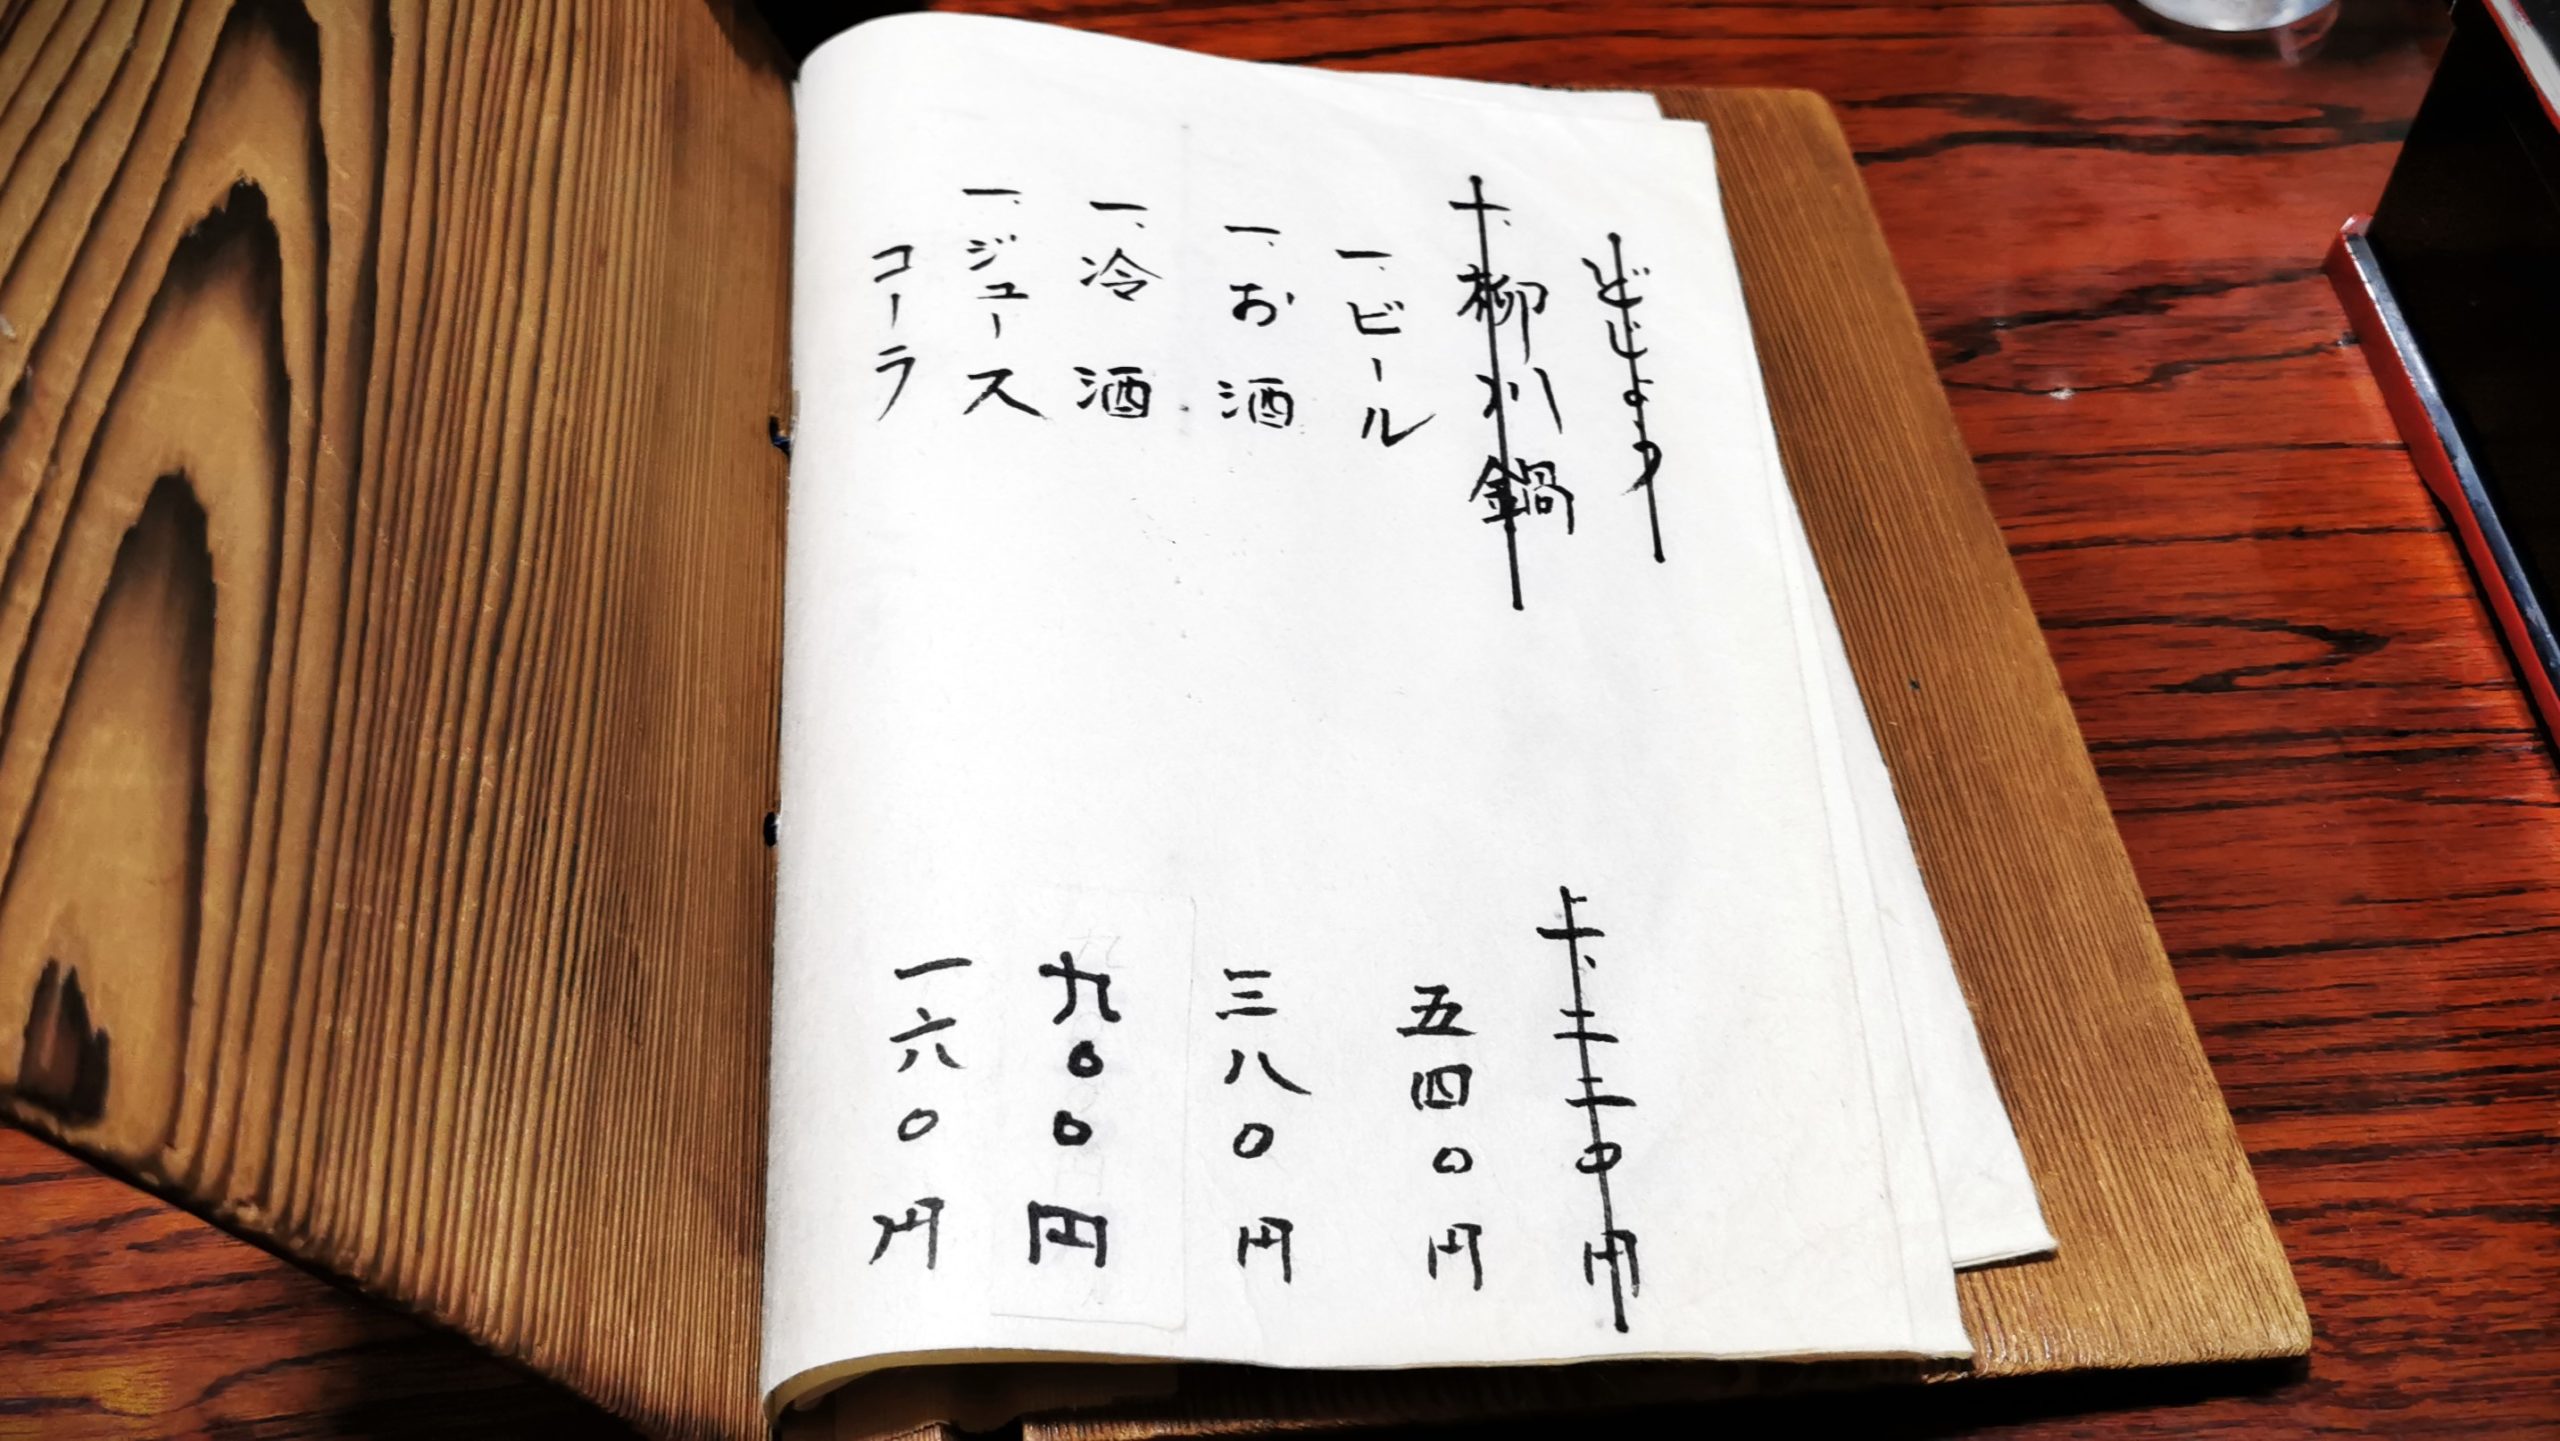 どじょう
一、柳川鍋
二、二二〇円
一、ビール
五四〇円
一、お酒
三八〇円
一、冷酒
九〇〇円
一、ジュース
コーラ
一六〇円